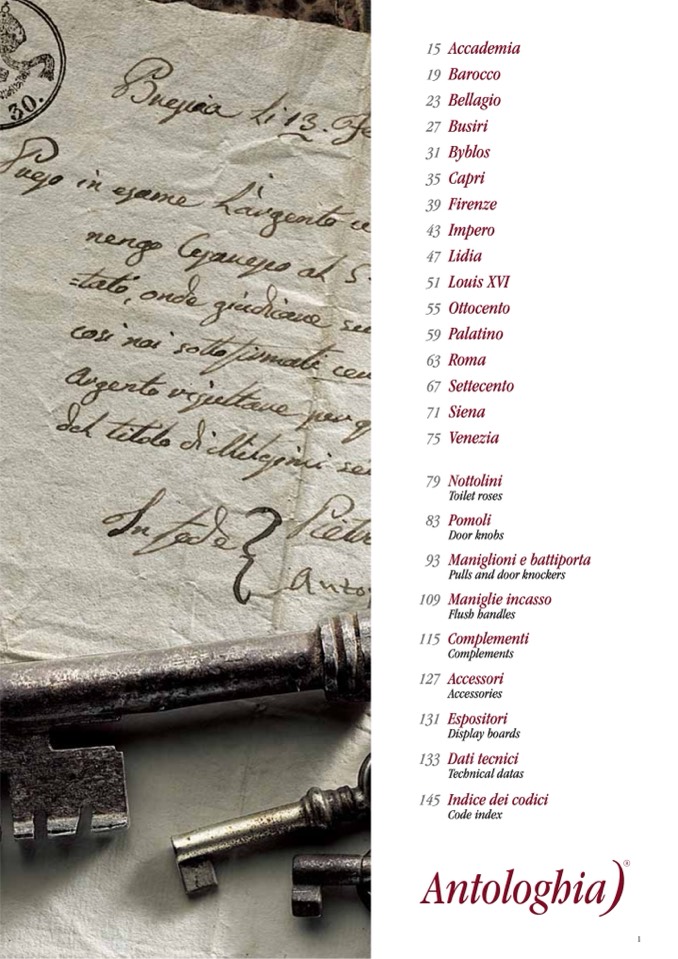 30.
li 13.
in esame l'argento
al S.
onde giudicare
così noi sottofirmati
argento
del titolo di
In fede
15 Accademia
19 Barocco
23 Bellagio
27 Busiri
31 Byblos
35 Capri
39 Firenze
43 Impero
47 Lidia
51 Louis XVI
55 Ottocento
59 Palatino
63 Roma
67 Settecento
71 Siena
75 Venezia
79 Nottolini
Toilet roses
83 Pomoli
Door knobs
93 Maniglioni e battiporta
Pulls and door knockers
109 Maniglie incasso
Flush handles
115 Complementi
Complements
127 Accessori
Accessories
131 Espositori
Display boards
133 Dati tecnici
Technical datas
145 Indice dei codici
Code index
Antologhia)®
1